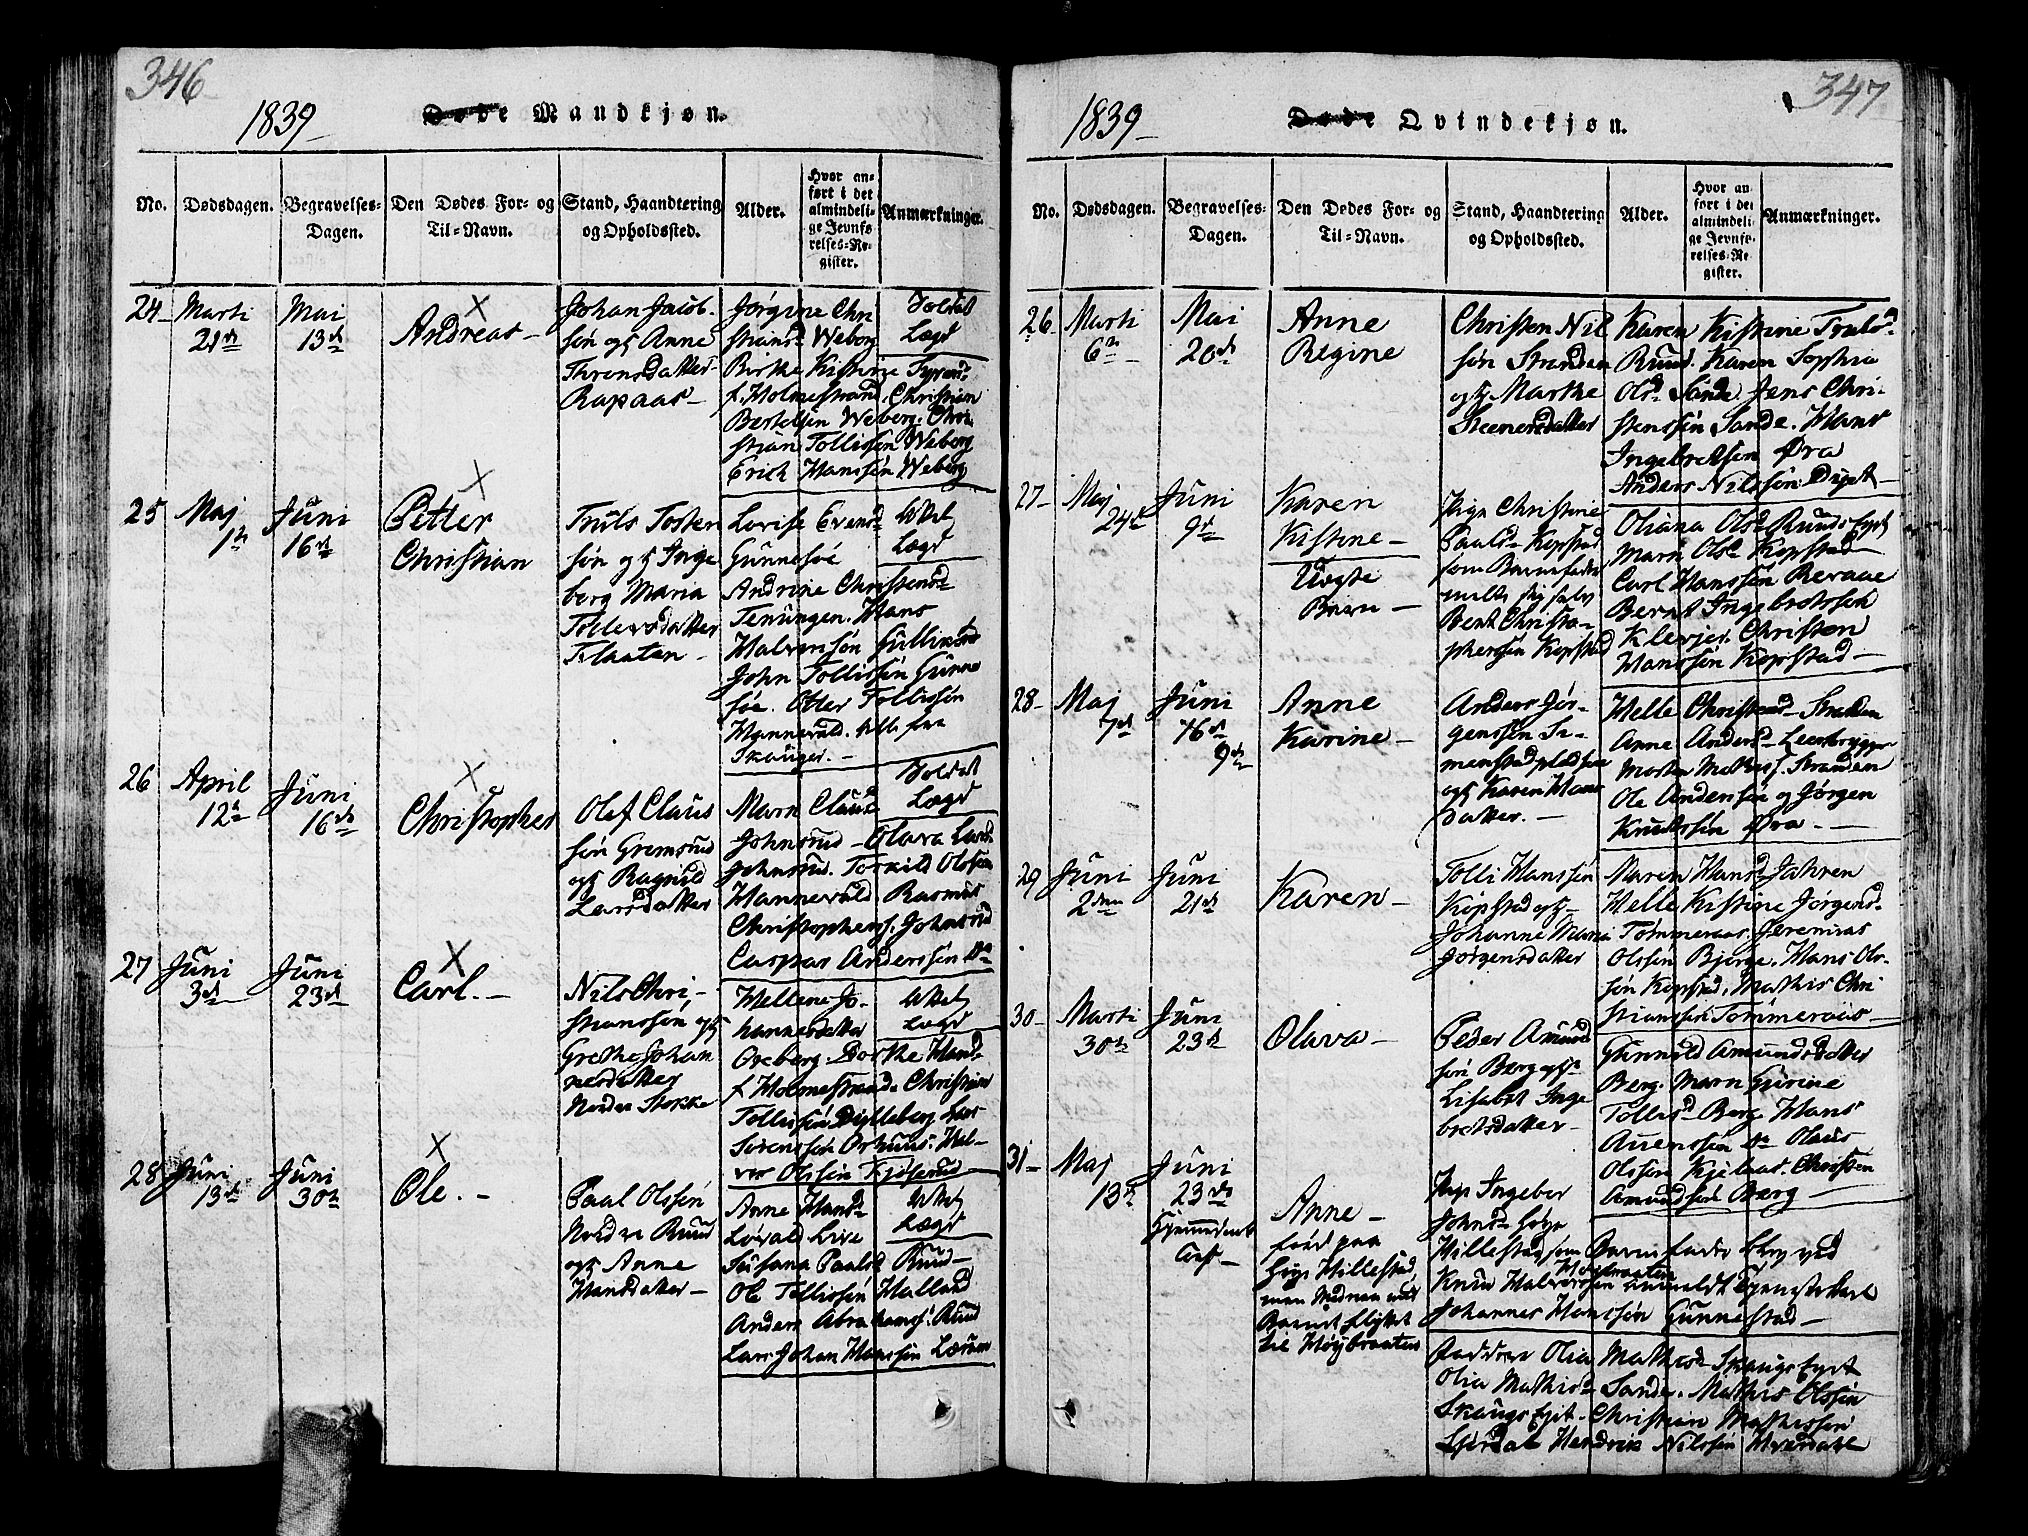 346
1839
Døde Mandkjøn.
No.
Dødsdagen.
Begravelses-
Dagen.
Den Dødes For- og
Til-Navn.
Stand, Haandtering
og Opholdssted.
Alder.
Hvor an-
ført i det
almindeli-
ge Jevnfø-
relses-Re-
gister.
Anmærkninger.
24
Marti
21de
Mai
13de
Andreas
Johan Jacob-
søn og Anne
Thrensdatter
Rapaas
Jørgine Chri
stiansd Weborg
Birthe Kistine
f. Holmestrand. Christian
Bertelsen Weborg. Chri
stian Tollissøn Weborg
Erich Hanssøn Weborg
Soldat
Lægd
25
Maj
1te
Juni
16de
Petter
Christian
Truls Tosten
søn og Inge
borg Maria
Tollersdatter
Flaaten
Lovise Evensd
Gunnesøe
Andrine Christensd
Tenungen. Hans
Halvorssøn Gullixrød
John Tollissøn Gunne
søe. Otter Tollissøn
Hannevald. Alle fra
Skauger.
Uttel
Lægd
26
April
12te
Juni
16de
Christopher
Olef Claus
søn Gremsrud
og Ragnild
Larsdatter
Marn Clausd
Johnsrud Olava Larsd
Johnsrud. Torkild Olssøn
Hannevald. Rasmus
Christophers. Johnsrud
Caspar Anderssøn do
Soldat
Lægd
27
Juni
3de
Juni
23de
Carl.
Nils Chri-
stianssøn og
Grethe Johan
nesdatter
Nordre Stokke
Hellene Jo-
hannesdatter
Oreberg. Dorthe Hansd
f Holmestrand. Christian
Tollissøn Dylleberg Lars
Sørenssøn Orhuus. Hal-
vor Olssøn Fjøserud
Uttel
Lægd
28
Juni
13de
Juni
30te
Ole.
Paal Olssøn
Nordre Ruud
og Anne
Hansdatter
Anne Hansd
Løvald Live
Susana Paalsd Ruud
Ole Tollissøn Halland
Anders Abrahams. Ruud
Lars Johan Hanssøn Lærum
Uttel
Lægd
347
1839
Døde Qvindekjøn.
No.
Dødsdagen.
Begravelses-
Dagen.
Den Dødes For- og
Til-Navn.
Stand, Haandtering
og Opholdssted.
Alder.
Hvor an-
ført i det
almindeli-
ge Jevnfø-
relses-Re-
gister.
Anmærkninger.
26
Marti
6te
Mai
20de
Anne
Regine
Christen Nil
søn Stranden
og Marthe
Steenersdatter
Karen Kistine Trulsd
Ruud. Karen Sophia
Olsd Sande Jens Chri-
stenssøn Sande. Hans
Ingebretsen Øra
Anders Nilssøn Dypt
27
Maj
24de
Juni
9de
Karen
Kistine
Uægte
Barn
Pige Christine
Paalsd Kopstad
som Barnefader
meldte sig selv
Bent Christo-
phersøn Kopstad
Oliana Olsd Ruuds
Marn Olsd Kopstad
Carl Hanssøn Revaae
Bernt Ingebretssøn
Klevjer. Christen
Hanssøn Kopstad
28
Maj
7de
Juni
16de
9de
Anne
Karine
Anders Jør-
genssøn
og Karen Hans
datter.
Helle Christensd Stranden
Anne Andersd Leerbrygge
Morten Mathis. Stranden
Ole Anderssøn og Jørgen
Knudssøn Øra.
29
Juni
2den
Juni
21de
Karen
Tolli Hanssøn
Kopstad og
Johanne Maria
Jørgensdatter
Maren Hansd Jahren
Helle Kistine Jørgensd
Tommeraas. Jeremias
Olssøn Bjerge. Hans Ols-
søn Kopstad. Mathis Chri
stianssøn Tommeraas
30
Marti
30te
Juni
23de
Olava
Peder Amund
søn Berg og
Lisabet Inge
bretsdatter
Gunnild Amundsdatter
Berg. Marn Gurine
Tollisd Berg Hans
Auenssøn do Olaus
Olssøn Kjelaas. Christen
Amundssøn Berg
31
Maj
13de
Juni
23de
Hjemmedøbt
Anne
fød paa
Høye Hillestad
Barnet flyttet
til Høybraaten
Pige Ingebor
Johnsd Høye
Hillestad som Barnefader blev
Knud Halvorssøn
Høibraaten
Tjenestekarl
Johannes Hanssøn Gunnestad
Faddere Olia Mathisd Skaugs
Olia Mathisd Sande. Mathis Olssøn
Skaugs Christian Mathissøn
Hendrik Nilssøn